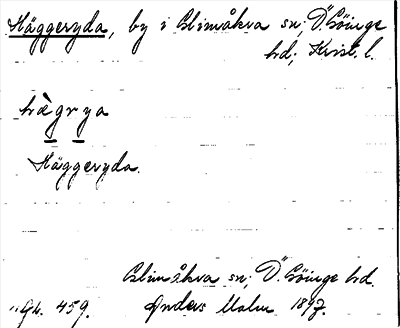 Häggeryda, by i Glimåkra sn; Ö. Göinge
hd; Krist. l.
hægrya
Häggeryda.
Glimåkra sn; Ö. Göinge hd.
Gh. 459. Anders Malm 1897.